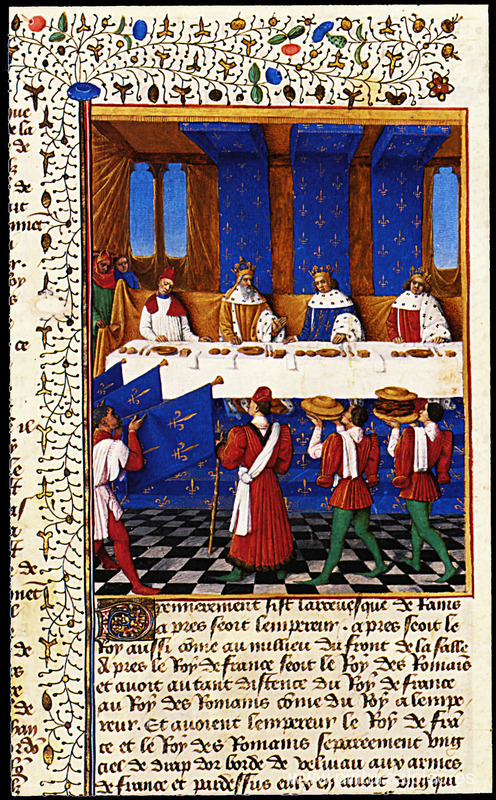 que
e la
de
de
ut
ce
il
de
met
de
de
Premierement sist larceuesque de Rains
a pres seoit lempereur . apres seoit le
Roy aussi cōme au millieu du front de la salle
Apres le Roy de france seoit le Roy des Romaīs
et auoit autant distence du Roy de france
au Roy des Romains cōme du Roy a lempe
reur. Et auoient lempereur le Roy de frā
ce et le Roy des Romains separeement vng
ciel de drap dor borde de veluiau aux armes
de france et pardessus eulx en auoit vng qui